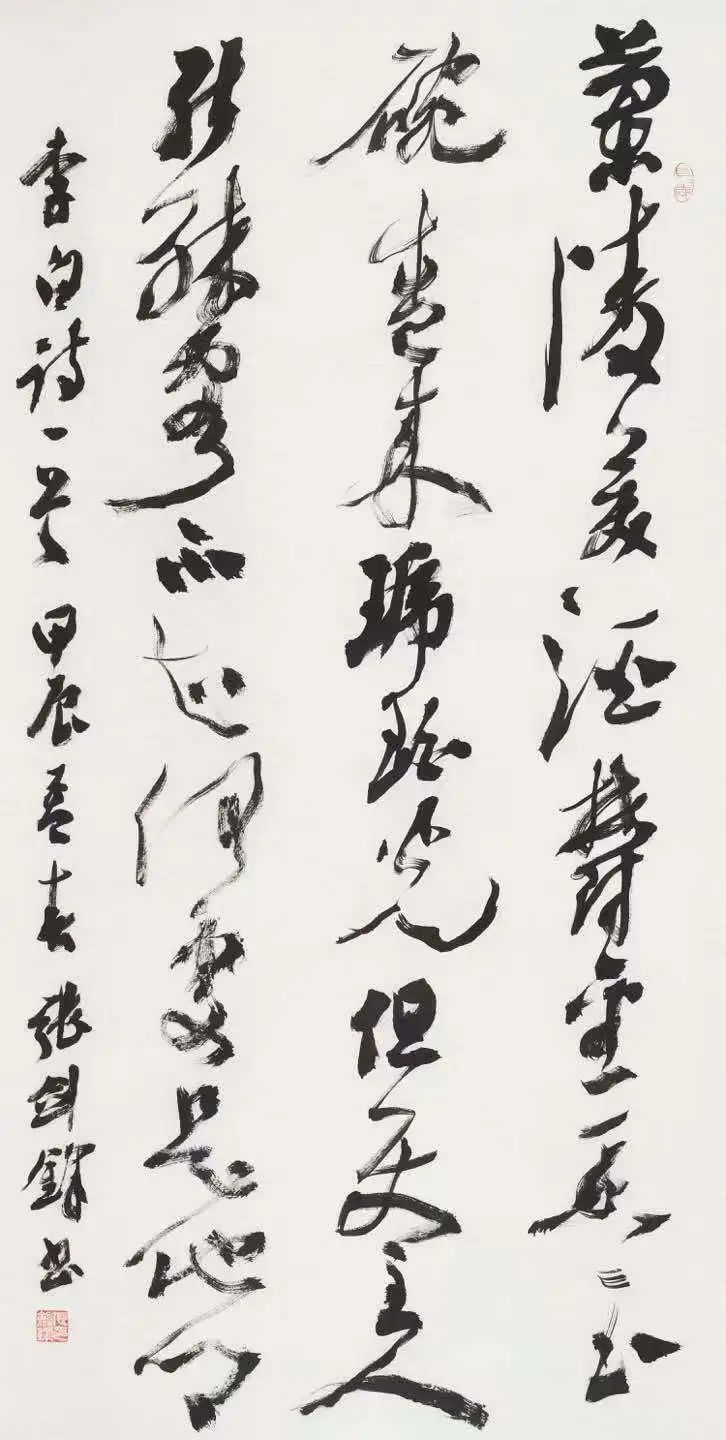 蘭陵美酒鬱金香玉
碗盛来琥珀光但使主人
能醉客不知何處是他鄉
李白詩一首 甲辰孟春 張劍書